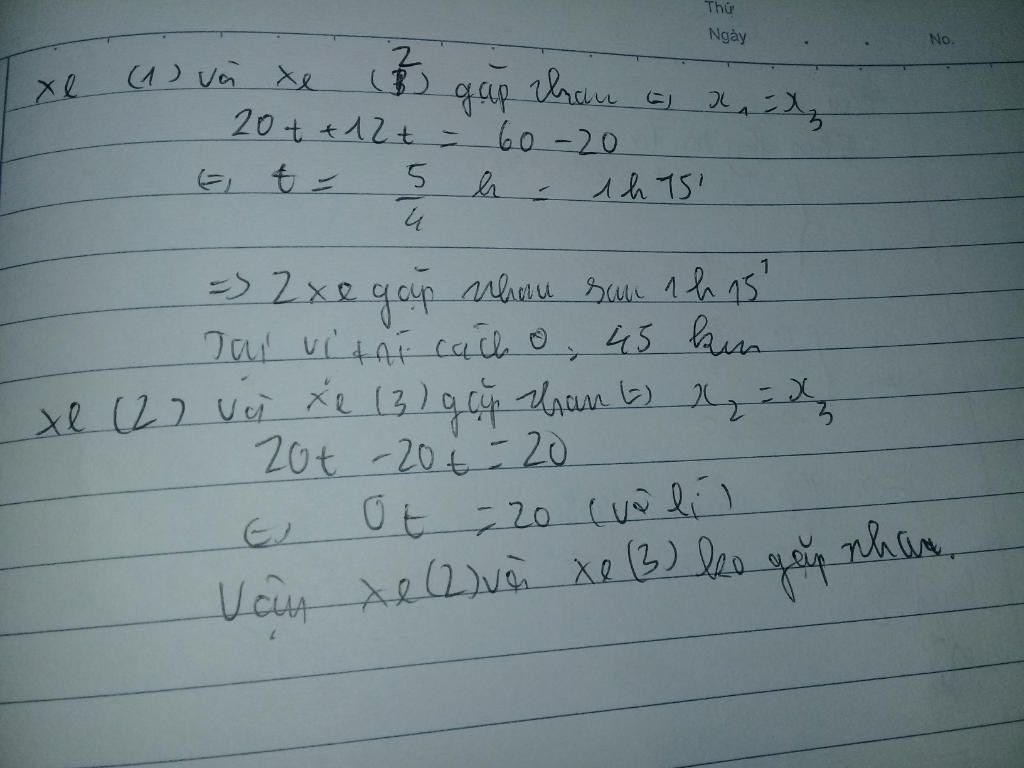 Thứ
Ngày . . No.
xe (1) và xe (2) gặp nhau (=) x₁ = x₃
20t + 12t = 60 - 20
(=) t = 5/4 h = 1h15'
=> 2 xe gặp nhau sau 1h15'
Tại vị trí cách O, 45 km
xe (2) và xe (3) gặp nhau (=) x₂ = x₃
20t - 20t = 20
(=) 0t = 20 (vô lí)
Vậy xe (2) và xe (3) ko gặp nhau.